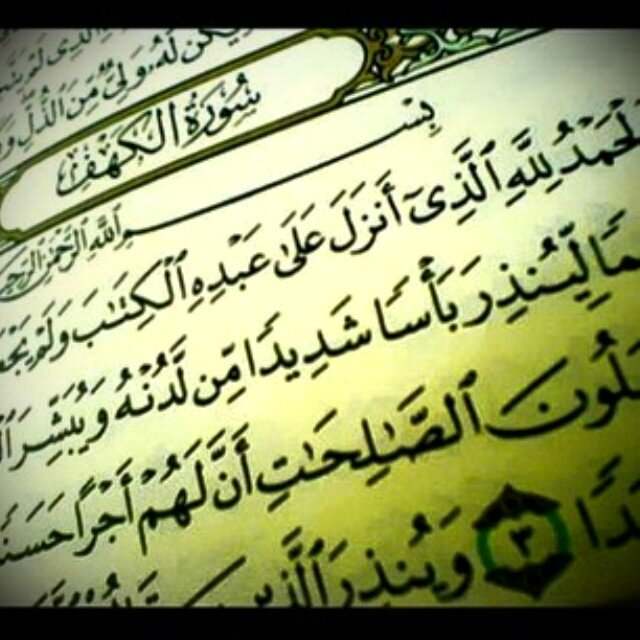 يَكُن لَّهُۥ وَلِىٌّ مِّنَ ٱلذُّلِّ
سُورَةُ الكَهْفِ
بِسْمِ ٱللَّهِ ٱلرَّحْمَٰنِ ٱلرَّحِيمِ
ٱلْحَمْدُ لِلَّهِ ٱلَّذِىٓ أَنزَلَ عَلَىٰ عَبْدِهِ ٱلْكِتَٰبَ وَلَمْ
لِّيُنذِرَ بَأْسًا شَدِيدًا مِّن لَّدُنْهُ وَيُبَشِّرَ
ٱلصَّٰلِحَٰتِ أَنَّ لَهُمْ أَجْرًا حَسَنًا
٣ وَيُنذِرَ ٱلَّذِينَ